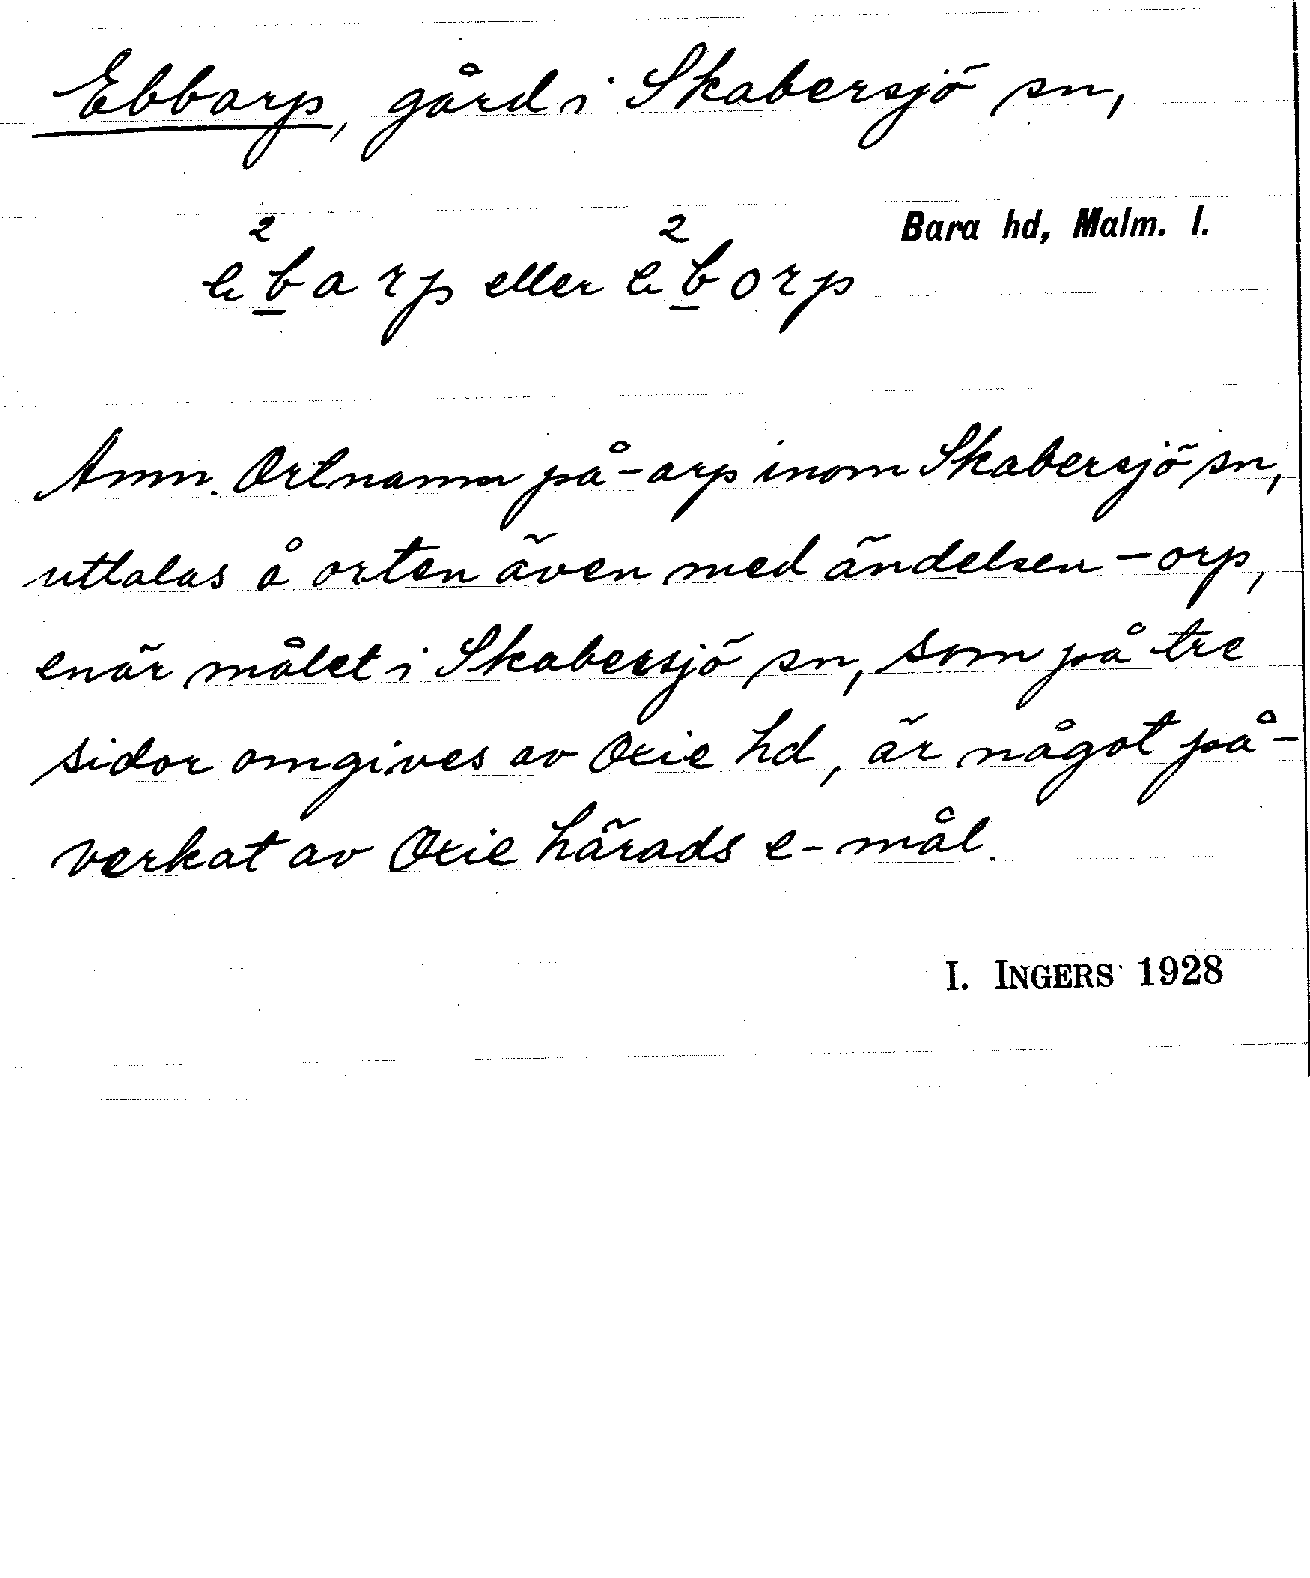 Ebbarp, gård i Skabersjö sn,
Bara hd, Malm. l.
eb²arp eller eb²orp
Anm. Ortnamn på -arp inom Skabersjö sn,
uttalas å orten även med ändelsen -orp,
enär målet i Skabersjö sn, som på tre
sidor omgives av Oxie hd, är något på-
verkat av Oxie härads e-mål.
I. INGERS 1928